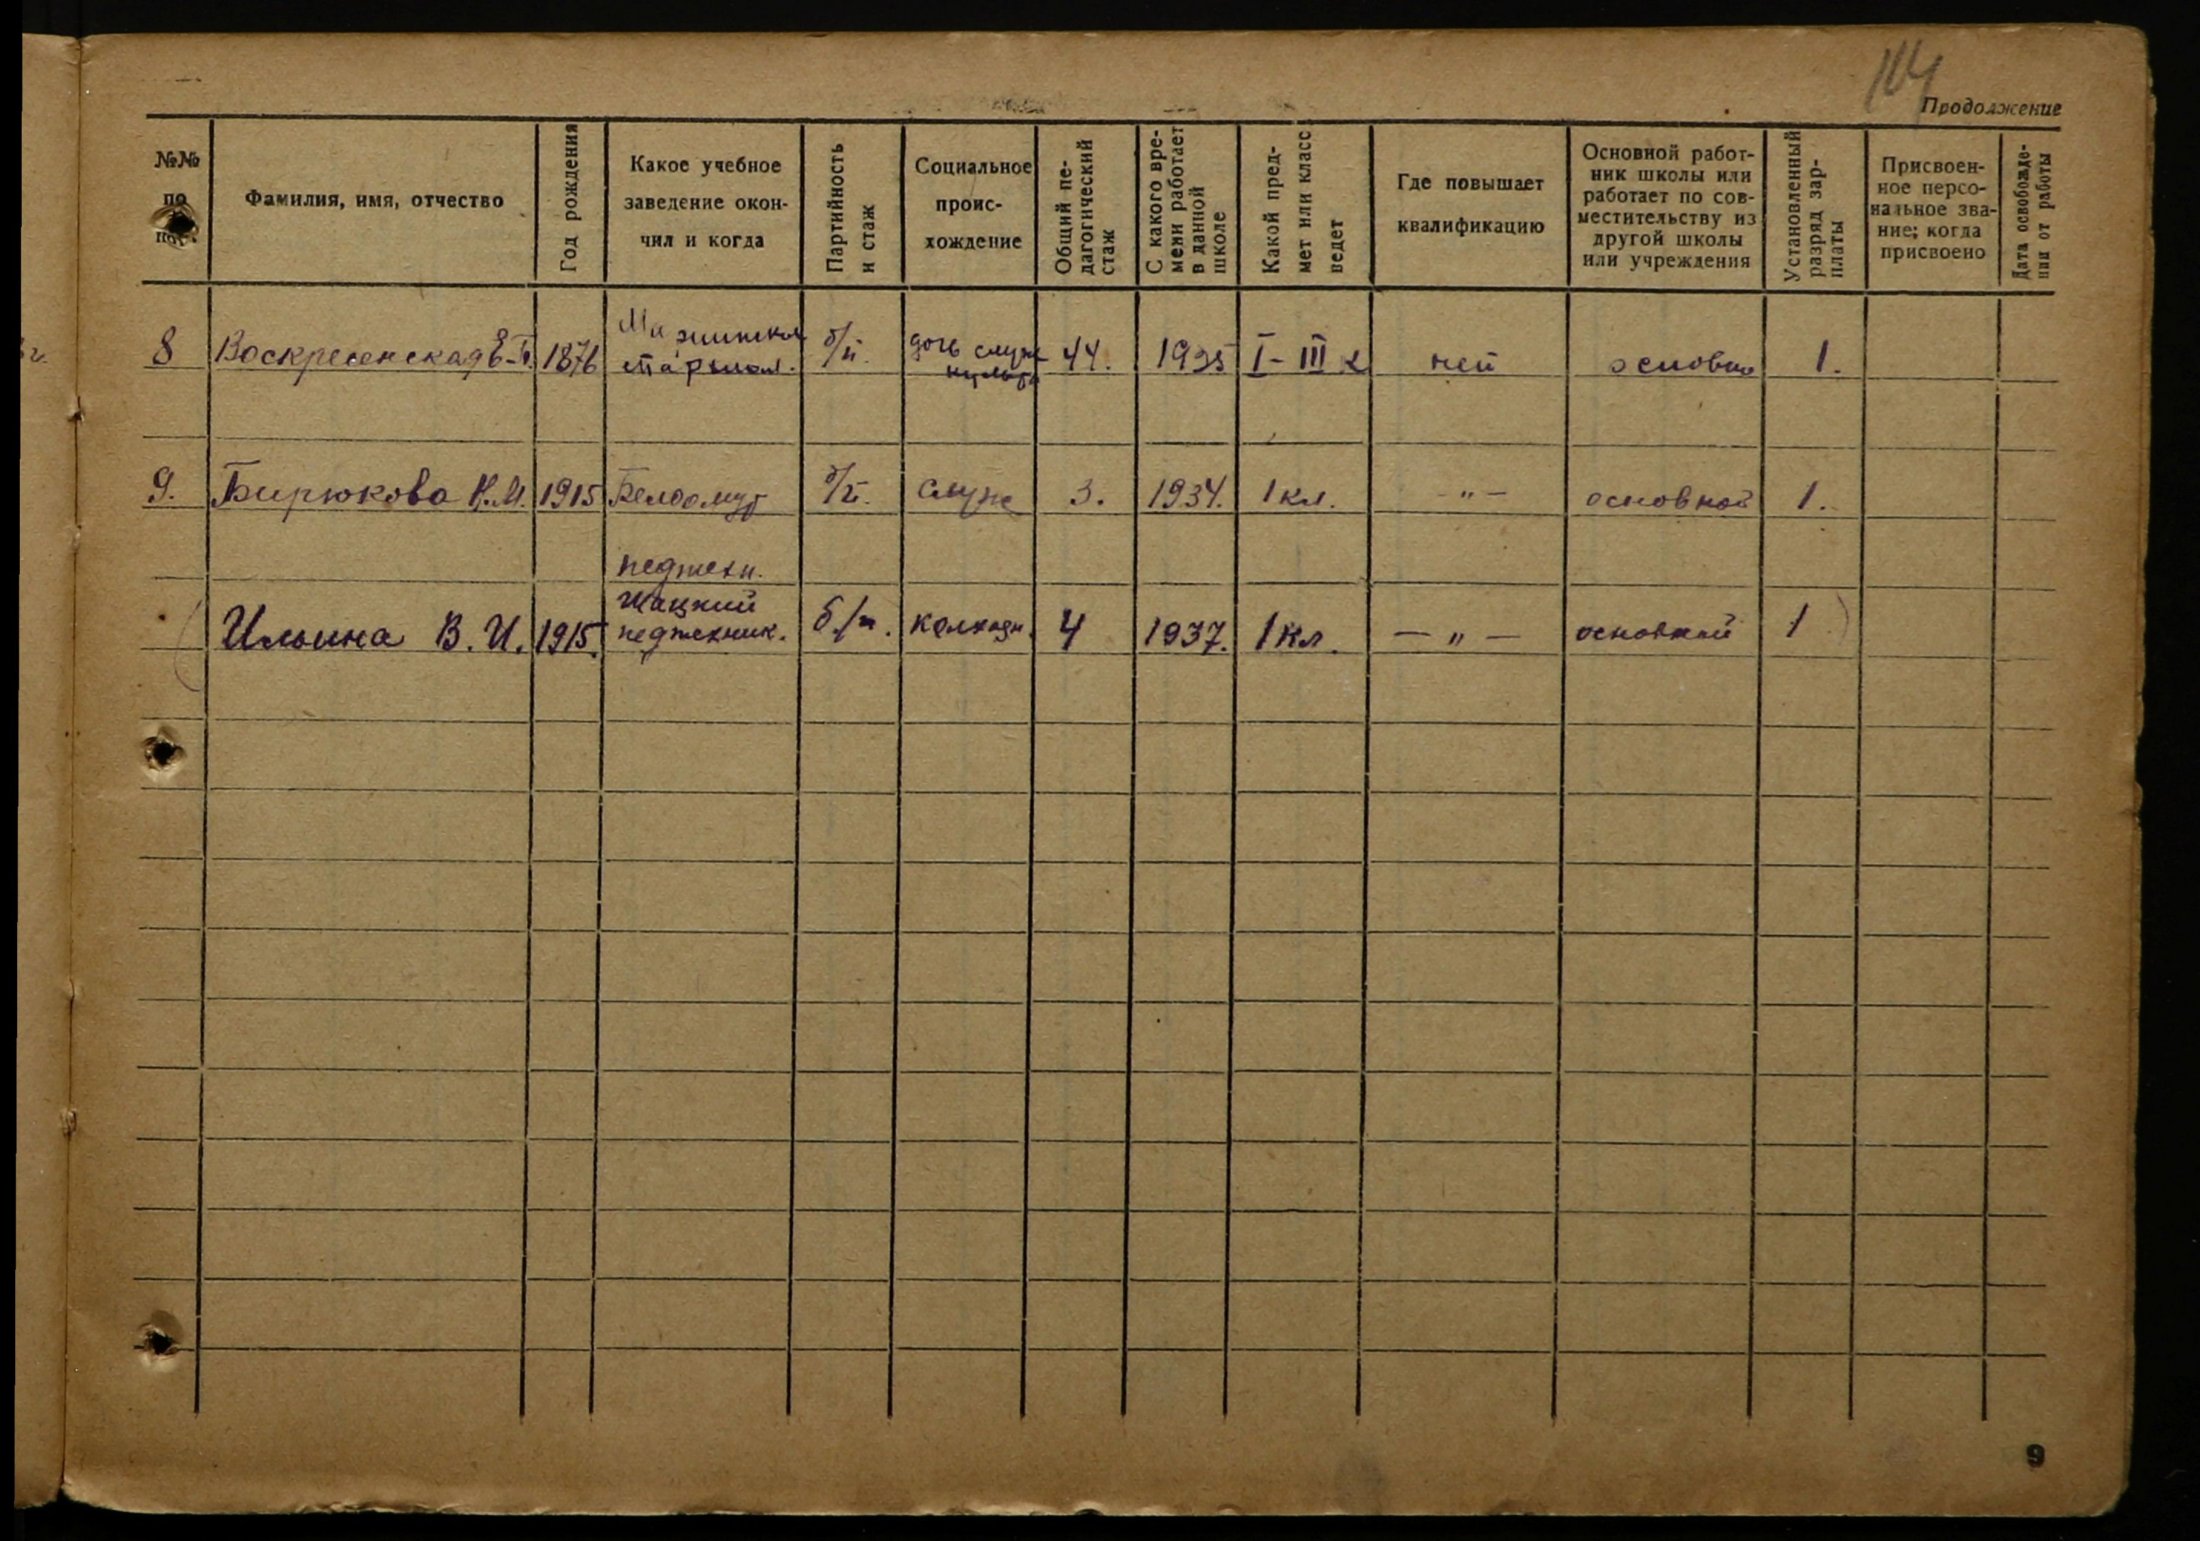 104
Продолжение
№№ по пор.
Фамилия, имя, отчество
Год рождения
Какое учебное
заведение окон-
чил и когда
Партийность
и стаж
Социальное
проис-
хождение
Общий пе-
дагогический
стаж
С какого вре-
мени работает
в данной
школе
Какой пред-
мет или класс
ведет
Где повышает
квалификацию
Основной работ-
ник школы или
работает по сов-
местительству из
другой школы
или учреждения
Установленный
разряд зар-
платы
Присвоен-
ное персо-
нальное зва-
ние; когда
присвоено
Дата освобожде-
нии от работы
8 Воскресенская 1876 б/п. дочь служ культа 44. 1935 I – III к нет основн 1.
9. Бирюкова Н.М. 1915 Белоомут б/п. служ 3. 1934. 1 кл. – " – основной 1.
педтехн.
Ильина В. И. 1915. Шацкий педтехник. б/п. колхозн. 4 1937. 1 кл. – " – основной 1
9